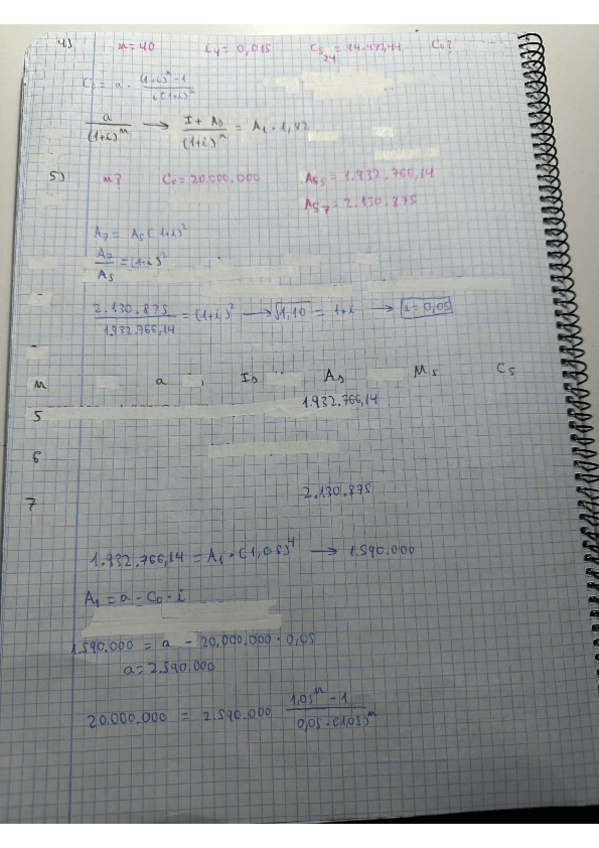 4) n=40 i₄=0,015 C₅₂₄=44.474,44 C₀?
C₀=a·((1+i)ⁿ-1)/(i(1+i)ⁿ)
a/(1+i)ⁿ → (I+As)/(1+i)ⁿ = A₁·1,42
5) n? C₀=20.000.000 As₅=1.932.766,14
As₇=2.130.875
A₇=A₅(1+i)²
A₇/A₅=(1+i)²
2.130.875/1.932.766,14=(1+i)² → √1,10=1+i → i=0,05
n a Is As Ms Cs
5 1.932.766,14
6
7 2.130.875
1.932.766,14=A₁·(1,05)⁴ → 1.590.000
A₁=a-C₀·i
1.590.000=a-20.000.000·0,05
a=2.590.000
20.000.000=2.590.000 (1,05ⁿ-1)/(0,05·(1,05)ⁿ)